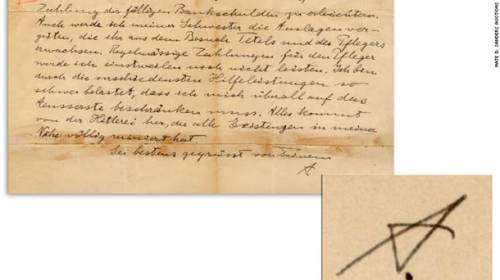 Zahlung der fälligen Bankschulden zu erleichtern.
Auch werde ich meiner Schwester die Auslagen ver-
güten, die ihr aus dem Besuch Tetels und des Pflegers
erwachsen. Regelmässige Zahlungen für den Pfleger
werde ich einstweilen noch nicht leisten. Ich bin
durch die verschiedensten Hilfeleistungen so
schwer belastet, dass ich mich überall auf das
Aeusserste beschränken muss. Alles kommt
von der Hitlerei her, die alle Existenzen in meiner
Nähe völlig ruiniert hat
Sei bestens gegrüsst von Deinem
A
NATE D. SANDERS AUCTIONS